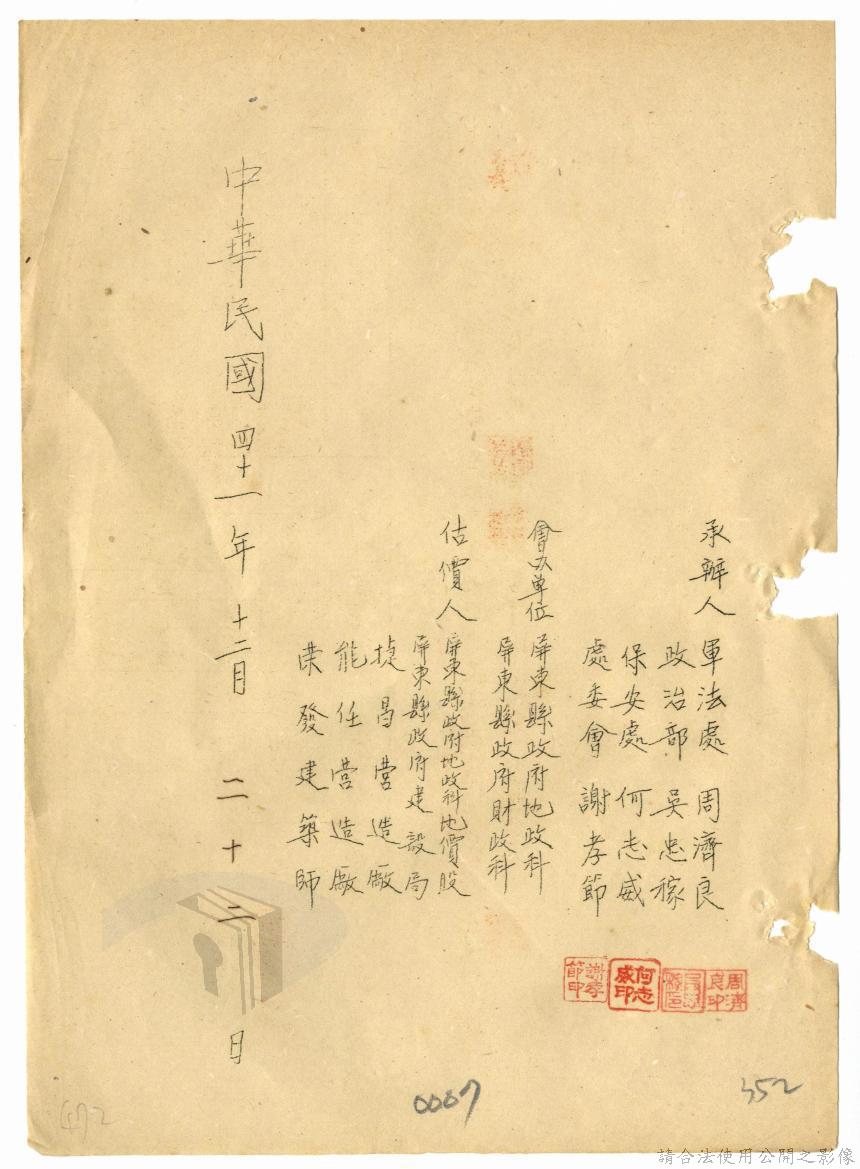 承辦人
軍法處 周濟良
政治部 吳忠稼
保安處 何志威
處委會 謝孝節
會办單位
屏東縣政府地政科
屏東縣政府財政科
估價人
屏東縣政府地政科地價股
屏東縣政府建設局
捷昌营造廠
能任营造廠
荣發建築師
中華民國四十一年十二月二十二日
周濟良印
何志威印
謝孝節印
0007
352
472
請合法使用公開之影像